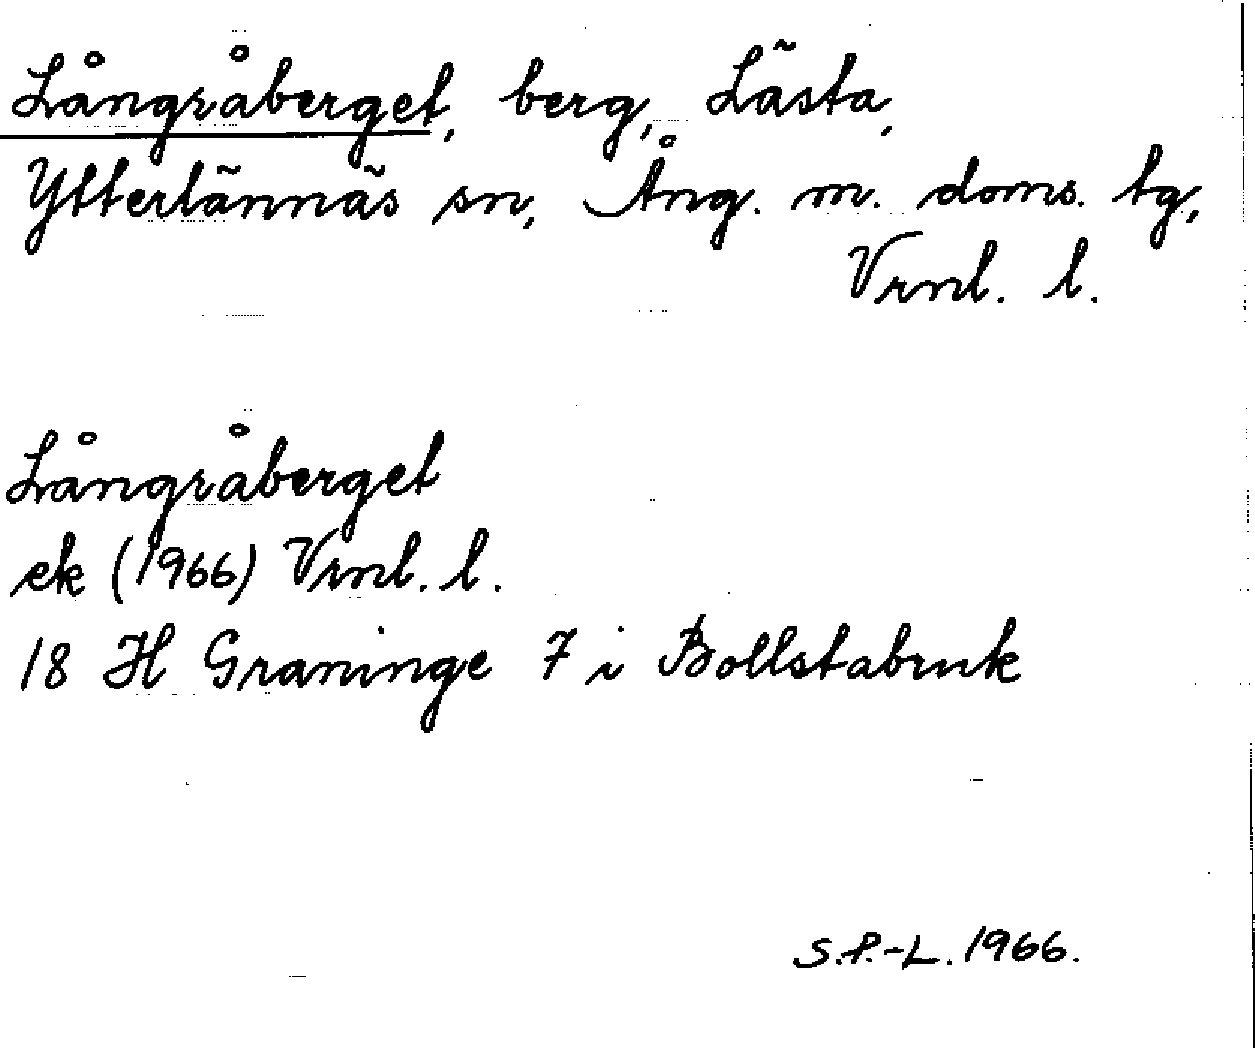 Långråberget, berg, Lästa,
Ytterlännäs sn, Ång. m. doms. tg,
Vrnl. l.
Långråberget
ek (1966) Vrnl. l.
18 H Graninge 7 i Bollstabruk
S.P.-L. 1966.